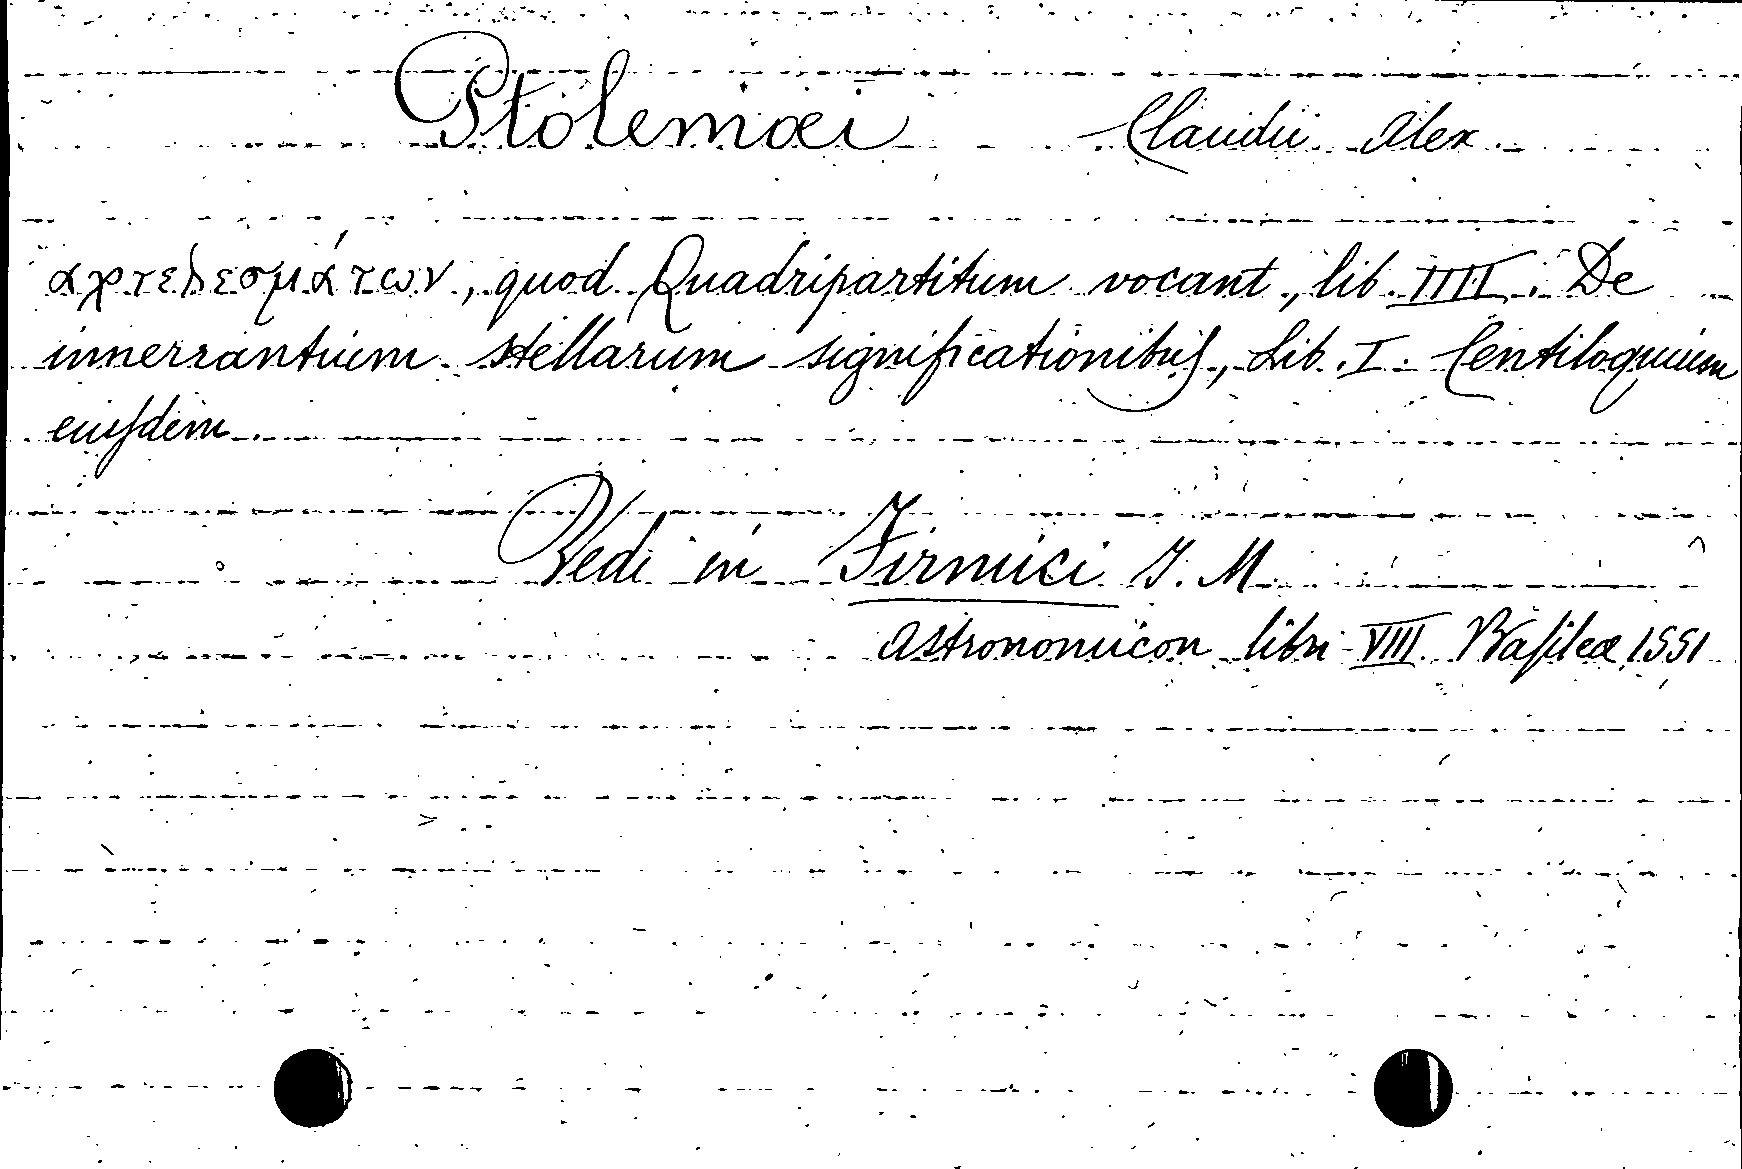 Ptolemæi Claudii Alex.
αρτεδεσμάτων, quod Quadripartitum vocant, lib. IIII. De
innerrantium stellarum significationibuſ, Lib. I. Centiloquium
eiuſdem.
Vedi in Firmici J. M.
Astronomicon libri VIII. Baſileæ, 1551